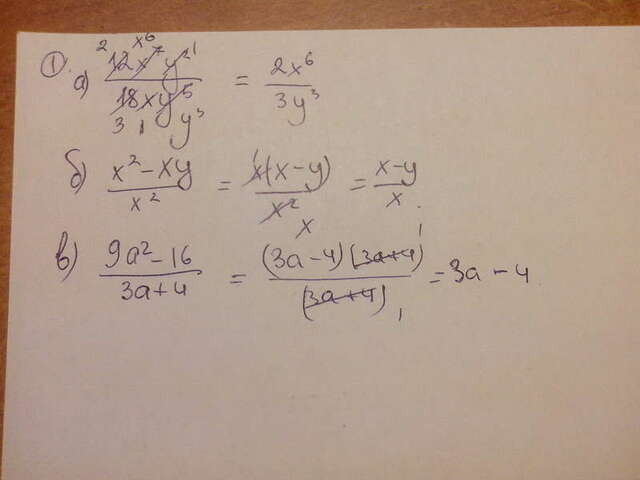 ① а) 12x⁷y² / 18xy⁵ = 2x⁶ / 3y³
б) x² - xy / x² = x(x - y) / x² = x - y / x
в) 9a² - 16 / 3a + 4 = (3a - 4)(3a + 4) / (3a + 4) = 3a - 4